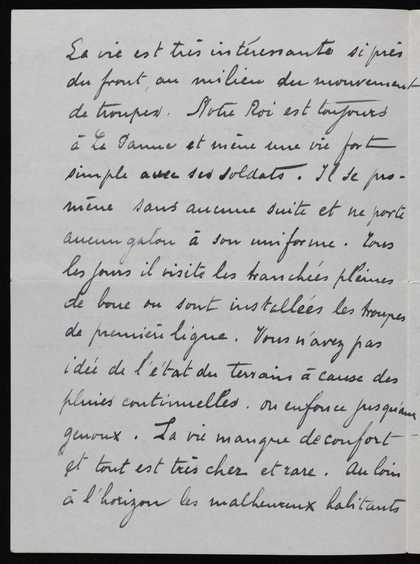 La vie est très intéressante si près
du front, au milieu du mouvement
de troupes. Notre Roi est toujours
à La Panne et mène une vie fort
simple avec ses soldats. Il se pro-
mène sans aucune suite et ne porte
aucun galon à son uniforme. Tous
les jours il visite les tranchées pleines
de boue ou sont installées les troupes
de première ligne. Vous n'avez pas
idée de l'état du terrain à cause des
pluies continuelles. on enfonce jusqu'aux
genoux. La vie manque de confort
et tout est très cher et rare. Au loin
à l'horizon les malheureux habitants